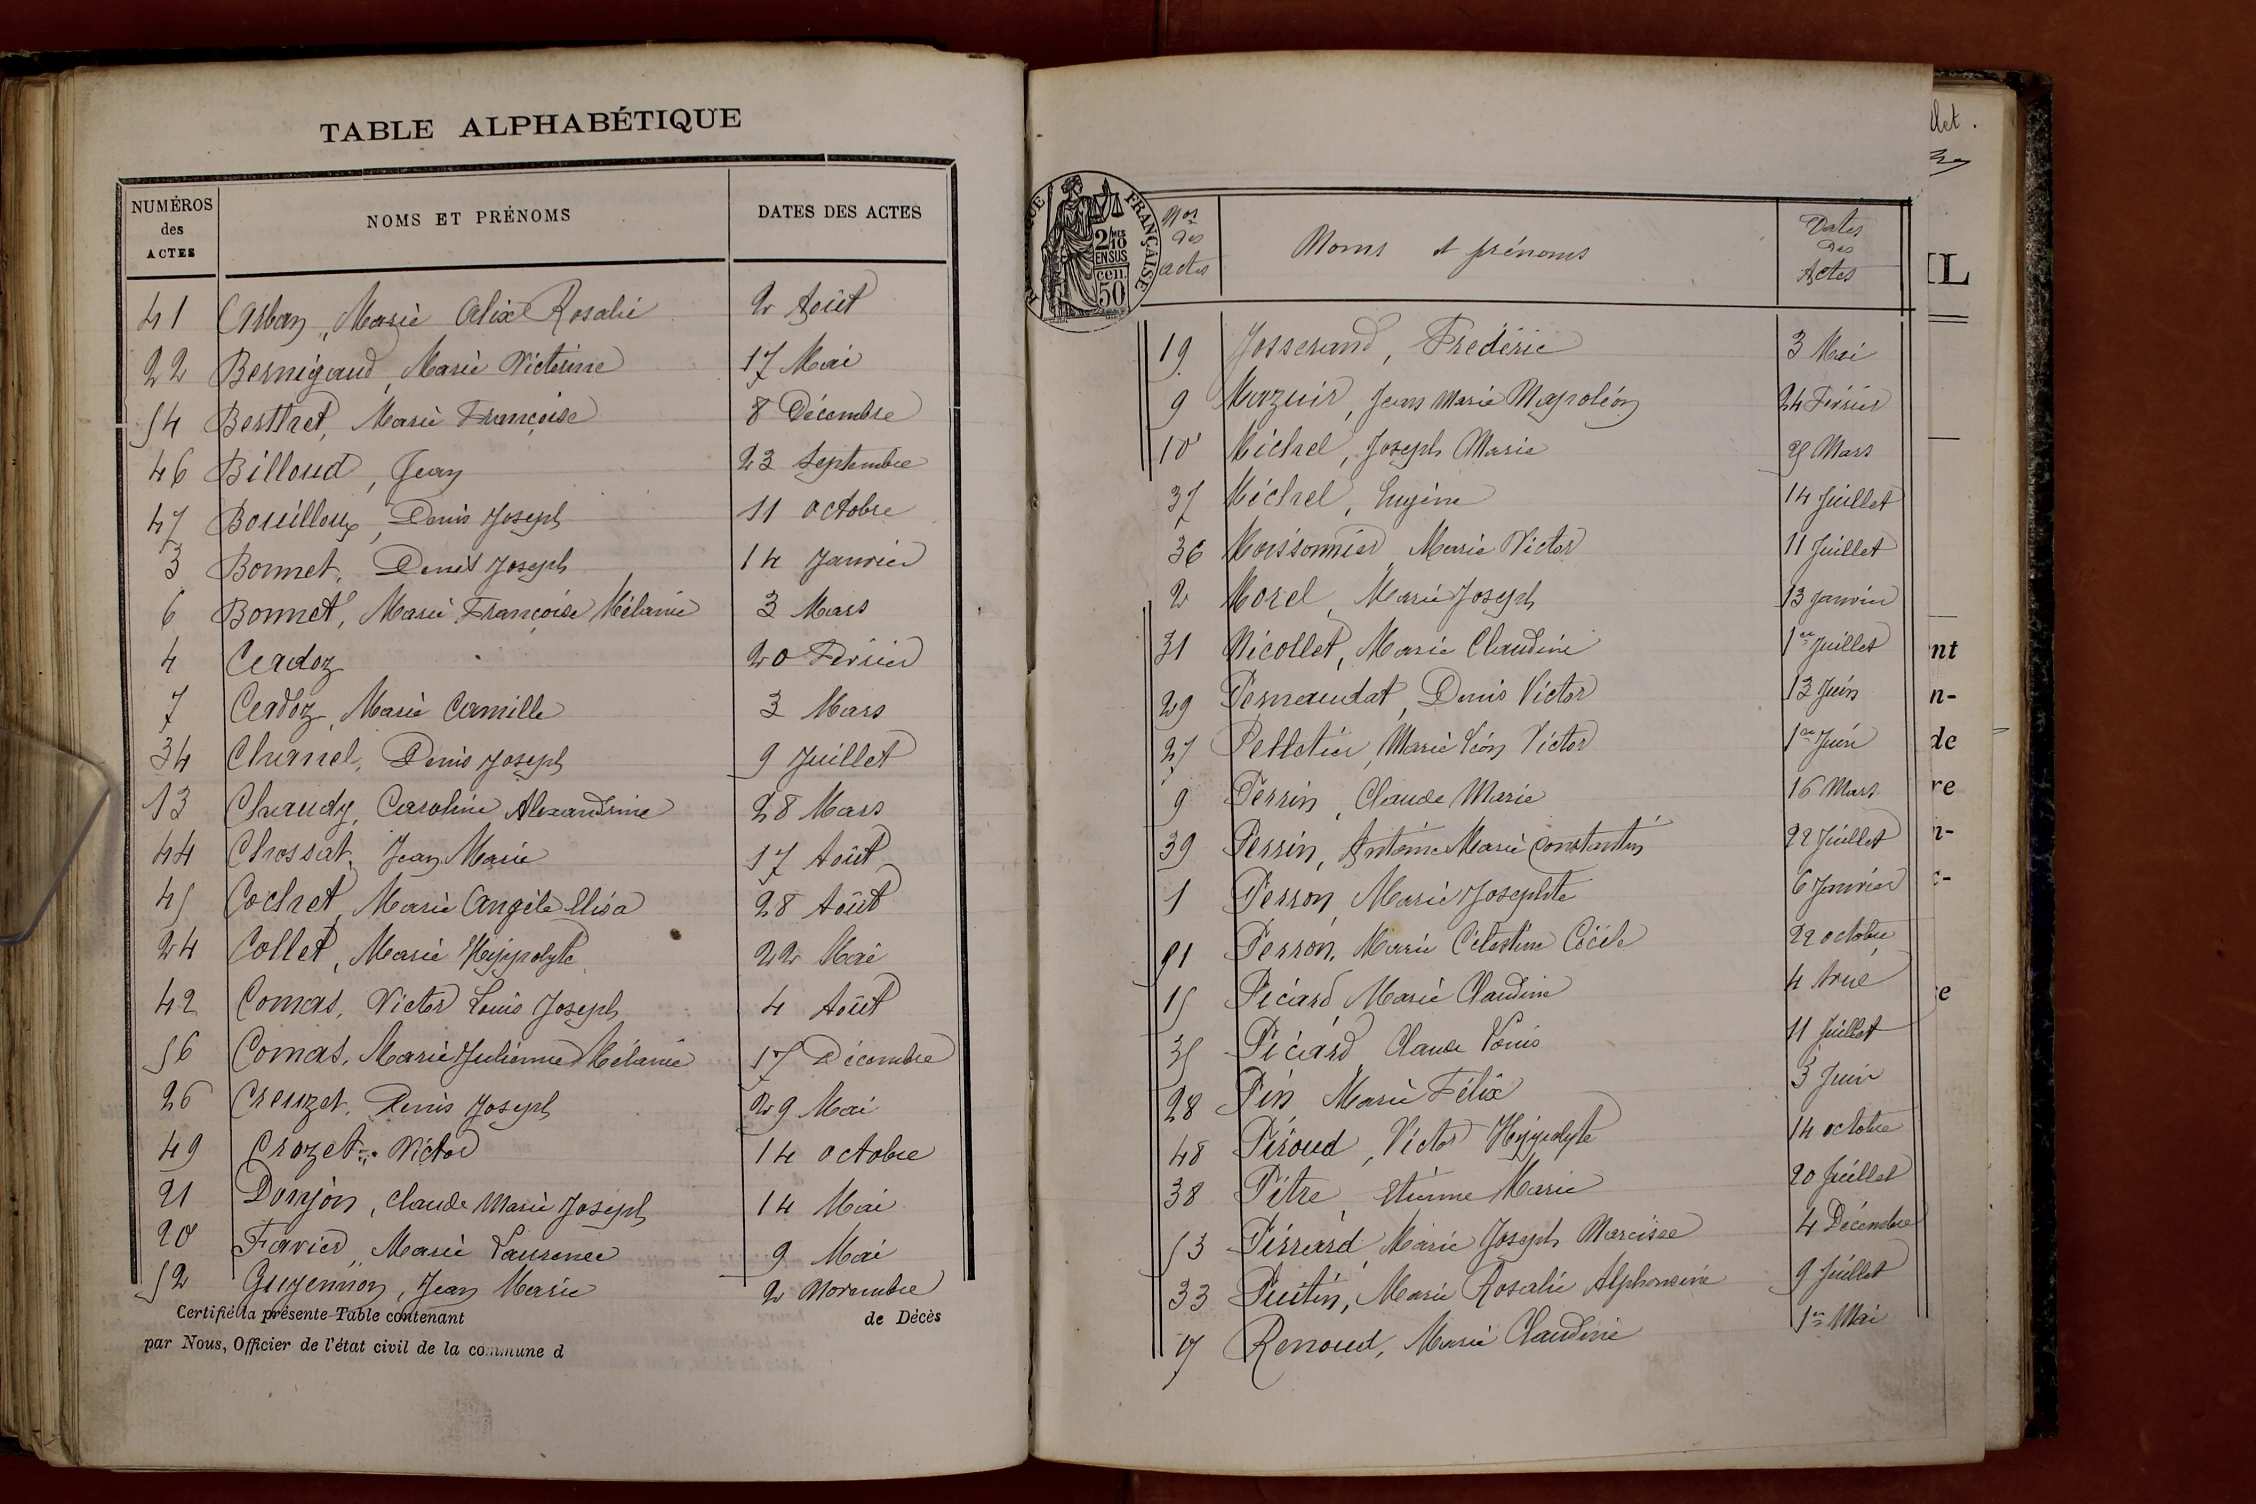 TABLE ALPHABÉTIQUE
NUMÉROS des ACTES NOMS ET PRÉNOMS DATES DES ACTES
41 Arban, Marie Alix Rosalie 2 Août
22 Bernigaud, Marie Victorine 17 Mai
54 Berthet, Marie Françoise 8 Décembre
46 Billoud, Jean 23 Septembre
47 Bouilloux, Denis Joseph 11 octobre
3 Bonnet, Denis Joseph 14 Janvier
6 Bonnet, Marie Françoise Mélanie 3 Mars
4 Cerdoz 20 Février
7 Cerdoz, Marie Camille 3 Mars
34 Chanel, Denis Joseph 9 Juillet
13 Chaudy, Caroline Alexandrine 28 Mars
44 Chossat, Jean Marie 17 Août
45 Cochet, Marie Angèle Elisa 28 Août
24 Collet, Marie Hyppolyte 22 Mai
42 Comas, Victor Louis Joseph 4 Août
56 Comas, Marie Julienne Mélanie 17 Décembre
26 Creuzet, Denis Joseph 29 Mai
49 Crozet, Victor 14 octobre
21 Donjon, Claude Marie Joseph 14 Mai
20 Favier, Marie Laurence 9 Mai
52 Guyennon, Jean Marie 2 Novembre
Certifié la présente Table contenant de Décès
par Nous, Officier de l'état civil de la commune d
FRANÇAISE
2/10MES
EN SUS
50 cen.
Nos des actes Noms et prénoms Dates des Actes
19 Josserand, Frédéric 3 Mai
9 Mazuir, Jean Marie Napoléon 24 Février
10 Michel, Joseph Marie 25 Mars
37 Michel, Eugène 14 Juillet
36 Moissonnier Marie Victor 11 Juillet
2 Morel, Marie Joseph 13 Janvier
31 Nicollet, Marie Claudine 1er Juillet
29 Pernaudat, Denis Victor 13 Juin
27 Pelletier, Marie Léon Victor 1er Juin
9 Perrin, Claude Marie 16 Mars
39 Perrin, Antoine Marie Constantin 22 Juillet
1 Perron, Marie Josephte 6 Janvier
51 Perron, Marie Célestine Cécile 22 octobre
15 Picard, Marie Claudine 4
35 Picard Claude Louis 11 Juillet
28 Pin Marie Félix 3 Juin
48 Piroud, Victor Hyppolyte 14 octobre
38 Pitre, Etienne Marie 20 Juillet
53 Pirrard, Marie Joseph Narcisse 4 Décembre
33 Putin, Marie Rosalie Alphonsine 9 Juillet
17 Renoud, Marie Claudine 1er Mai